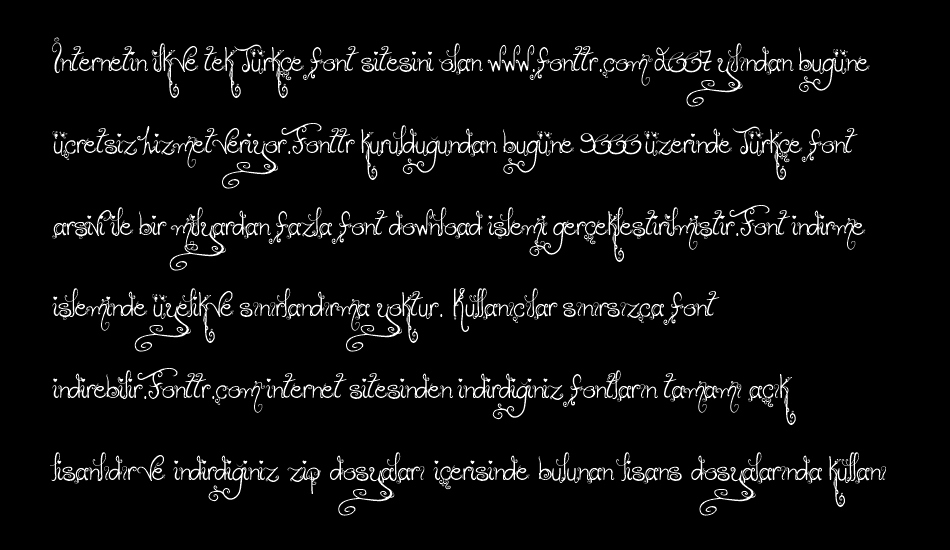 İnternetin ilk ve tek Türkçe font sitesini olan www.fonttr.com 2007 yılından bugüne
ücretsiz hizmet veriyor.Fonttr kurulduğundan bugüne 9000 üzerinde Türkçe font
arsivi ile bir milyardan fazla font download islemi gerçeklestirilmistir.Font indirme
isleminde üyelik ve sınırlandırma yoktur. Kullanıcılar sınırsızca font
indirebilir.Fonttr.com internet sitesinden indirdiğiniz fontların tamamı açık
lisanlıdır ve indirdiğiniz zip dosyaları içerisinde bulunan lisans dosyalarında kullanı